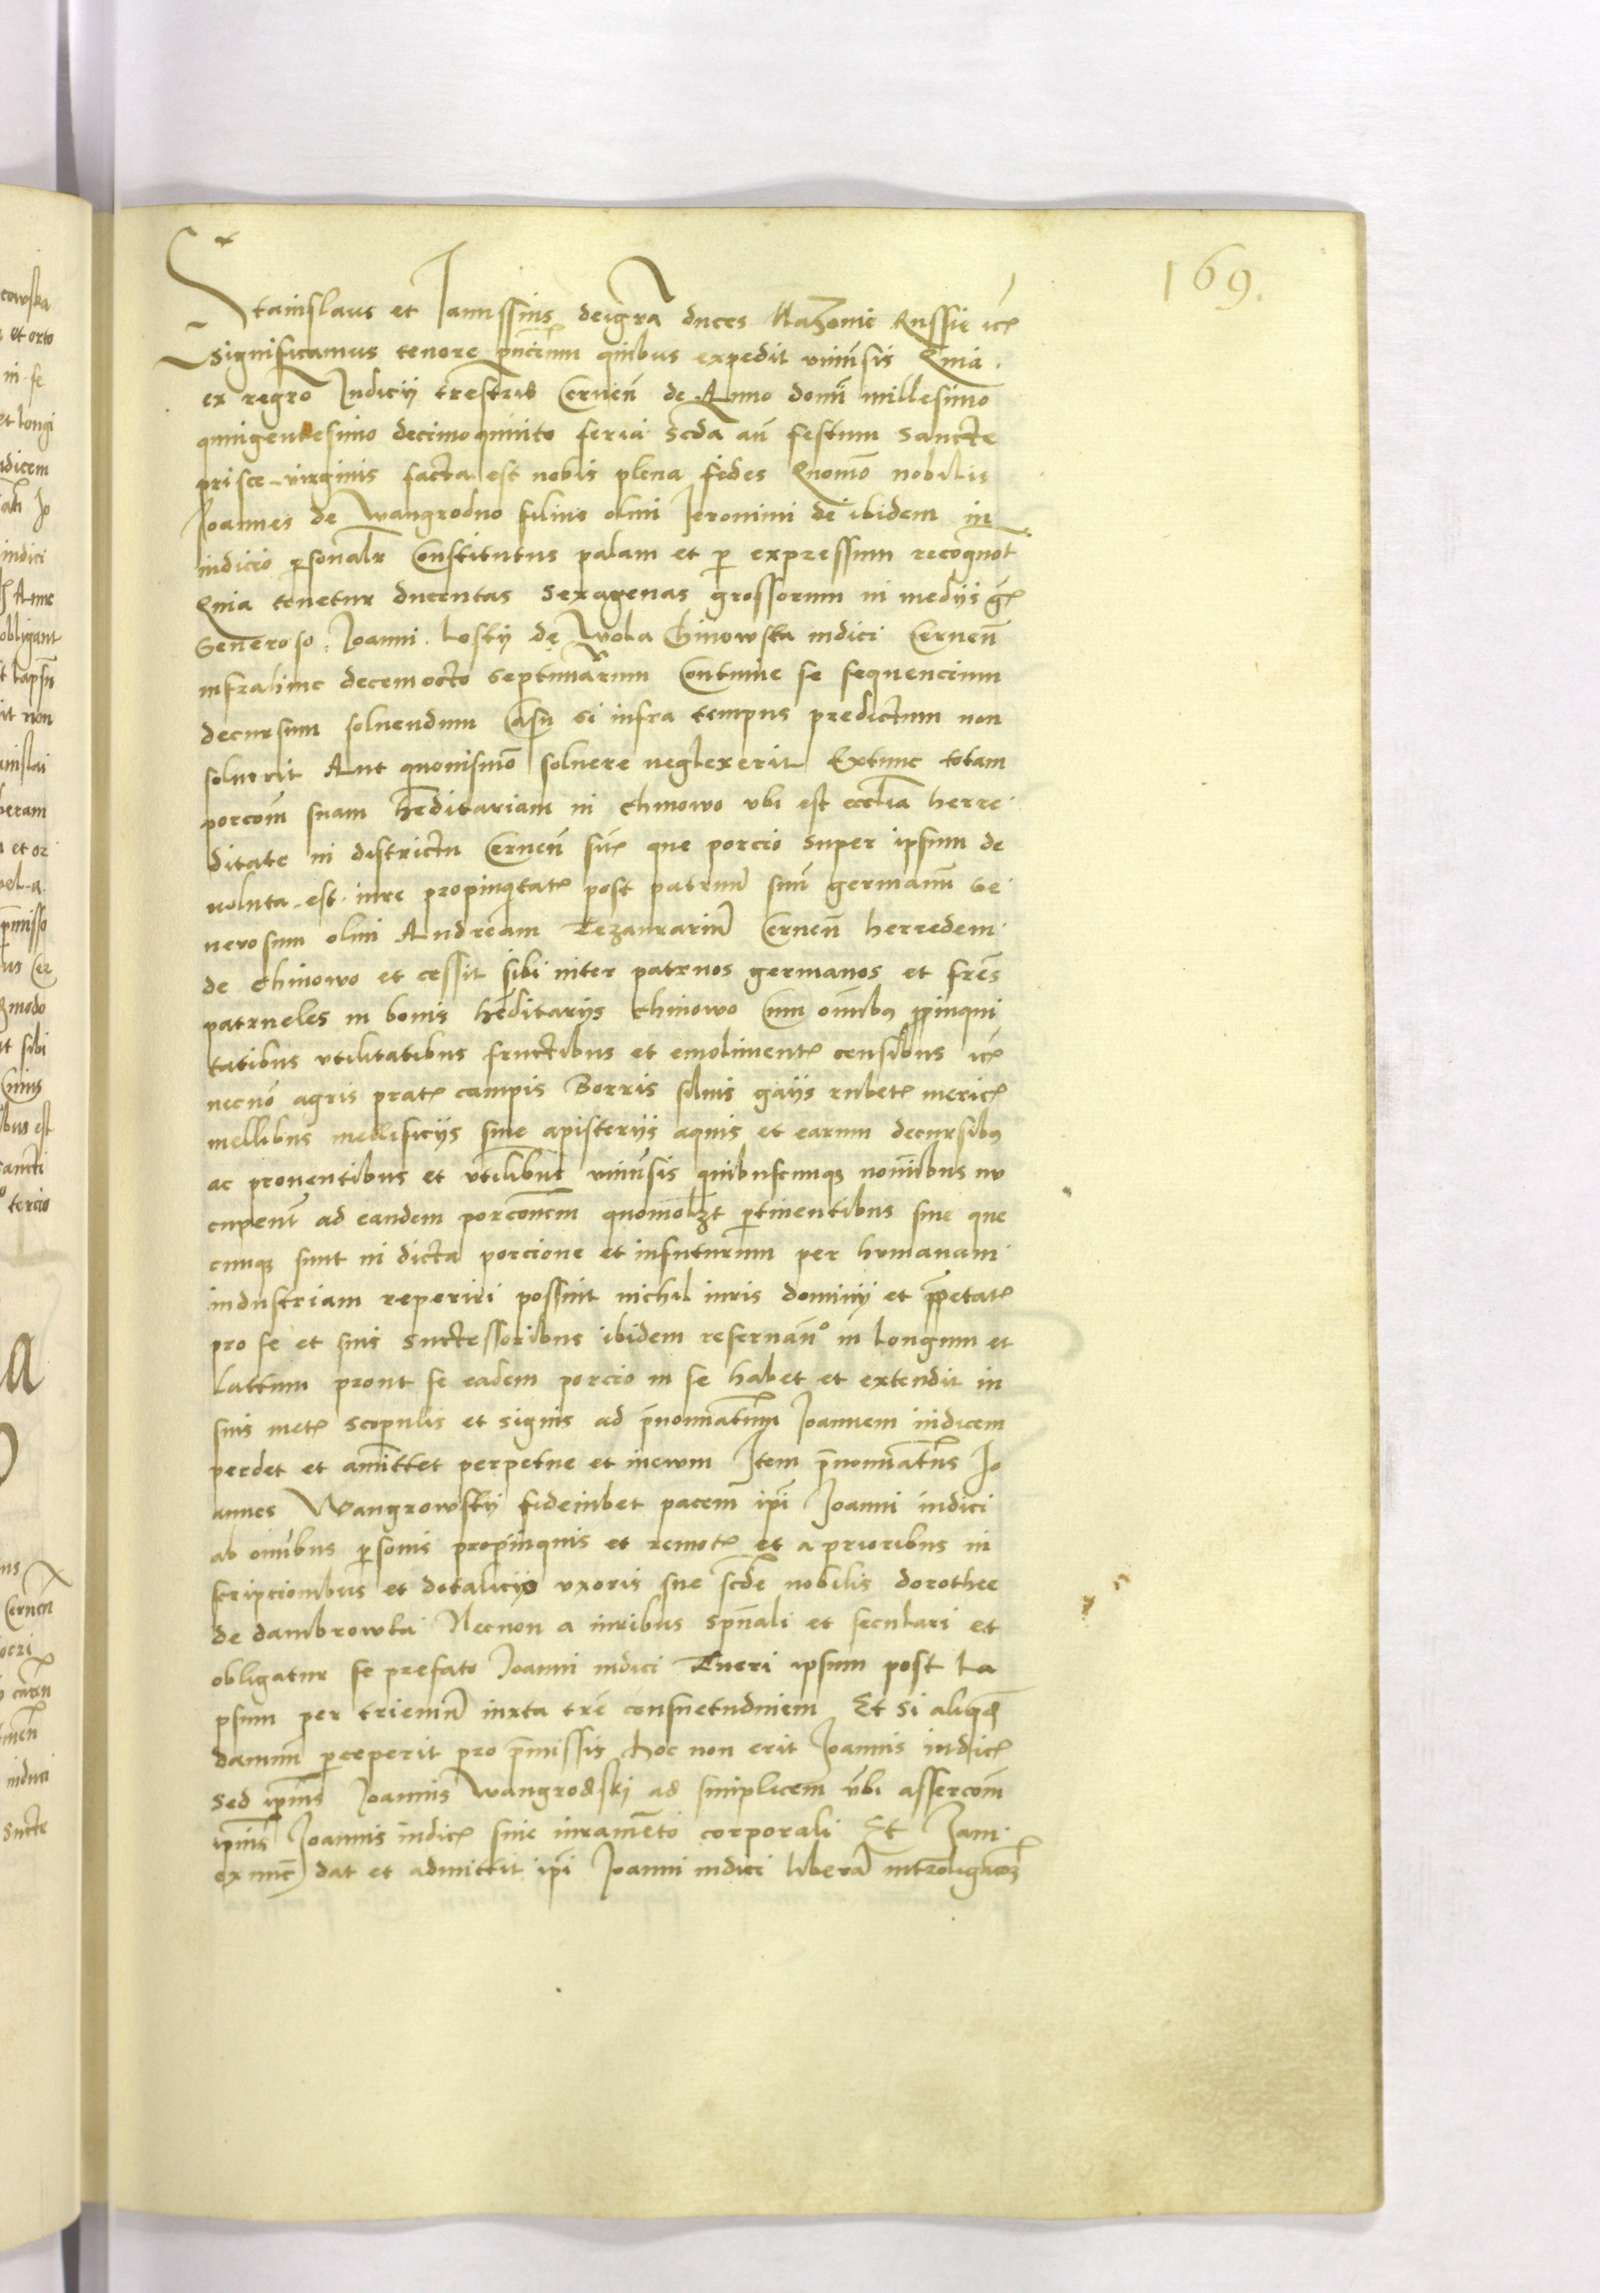 169.
Stanislaus et Janussius deigra duces Mazovie Russie etc
Significamus tenore pncium quibus expedit univsis Quia
ex regro Judicii trestris Cernen de Anno domi millesimo
quingentesimo decimoquinto feria scda an festum Sancte
prisce virginis facta est nobis plena fides Quomo nobilis
Joannes de Wangrodno filius olim Jeronimi de ibidem in
iudicio psonalr Constitutus palam et p expressum recognot
Quia tenetur ducentas Sexagenas grossorum in mediis gr
Generoso Joanni Losky de Wola Chinowska iudici Cernen
infrahinc decemocto septimarum Continue se sequencium
decursum solvendum Casu si infra tempus predictum non
solverit Aut quovismo solvere neglexerit Extunc totam
porcom suam heditariam in Chinowo ubi est ecclia herre
ditate in districtu Cernen sit que porcio super ipsum de
voluta est iure propinqtat post patruu suu germanu Ge
nerosum olim Andream Tezaurariu Cernen herredem
de Chinowo et cessit sibi inter patruos germanos et fres
patrueles in bonis heditariis Chinowo Cum omibus ppinqui
tatibus utilitatibus fructibus et emoliment censibus etc
necno agris prat campis Borris silvis gaiis rubet meric
mellibus mellificiis sive apisteriis aquis et earum decursibus
ac proventibus et utilibus univsis quibuscunque noibus nu
cupent ad eandem porconem quomolzt ptinentibus sive que
cunque sunt in dicta porcione et infuturum per humanam
industriam reperiri possint nichil iuris dominii et ppetat
pro se et suis Successoribus ibidem reservan in longum et
lattum prout se eadem porcio in se habet et extendit in
suis met scopulis et signis ad pnominatum Joannem iudicem
perdet et amittet perpetue et inewm Item pnominatus Jo
annes Wangrowsky fideiubet pacem ipi Joanni iudici
ab omibus psonis propinquis et remot et a prioribus in
scripcionibus et dotaliciis uxoris sue scde nobilis dorothee
de dambrowka Necnon a iuribus spuali et seculari et
obligatur se prefato Joanni iudici Tueri ipsum post la
psum per trieniu iuxta tre consuetudinem Et si aliquod
damnu pceperit pro pmissis hoc non erit Joannis iudic
sed ipius Joannis Wangrodski ad simplicem vbi assercom
ipius Joannis iudic sine iuramento corporali Et Jam
ex nunc dat et admittit ipi Joanni iudici libera intromligacoz